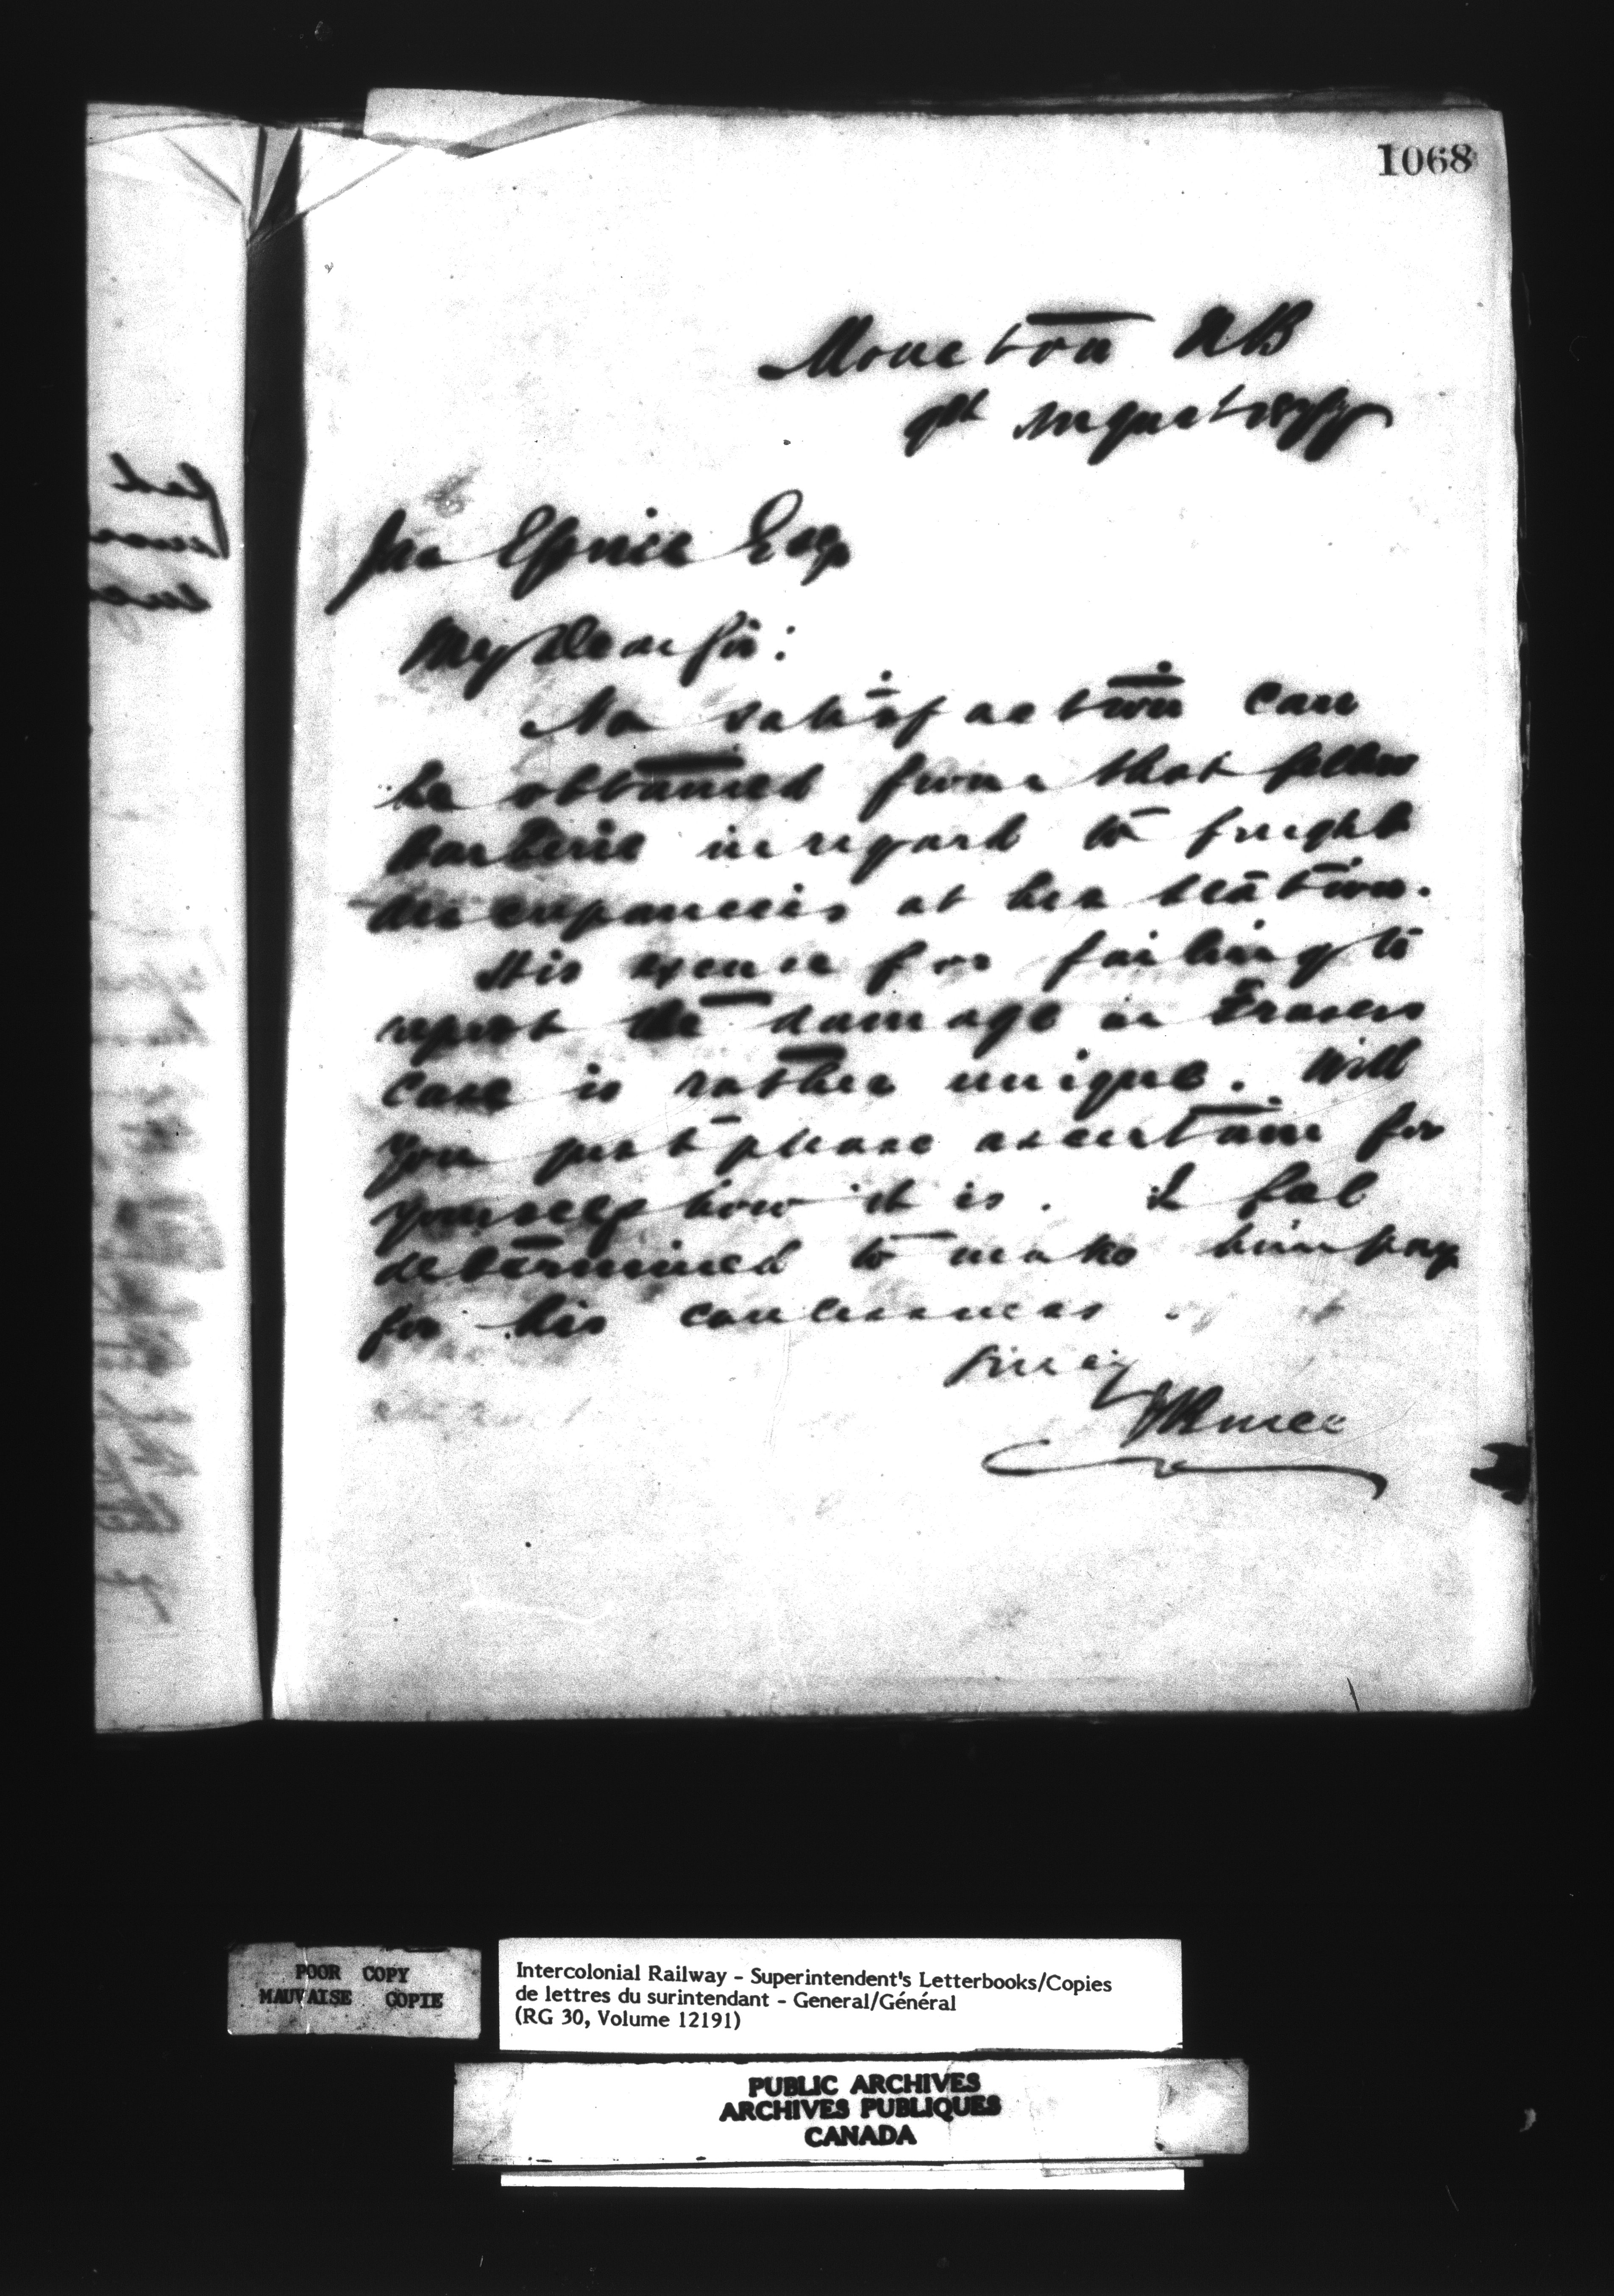 1068
Moncton NB
9th August 1877
Jno Esq
My Dear Sir:
No satisfaction can
be obtained from that fellow
in regard to freight
discrepancies at his station.
His excuse for failing to
report the damage in Frasers
case is rather unique. Will
you just please ascertain for
yourself how it is. I feel
determined to make him pay
for his carelessness
POOR COPY
MAUVAISE COPIE
Intercolonial Railway – Superintendent's Letterbooks/Copies
de lettres du surintendant – General/Général
(RG 30, Volume 12191)
PUBLIC ARCHIVES
ARCHIVES PUBLIQUES
CANADA